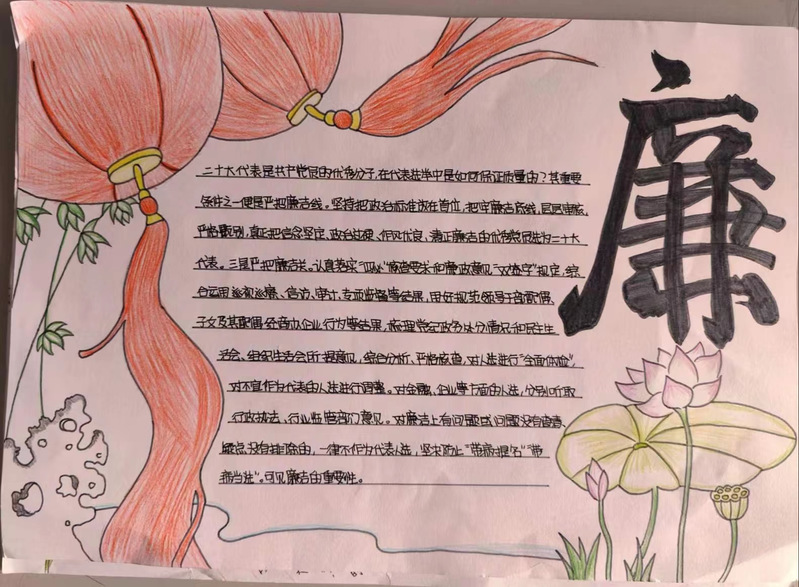 廉
二十大代表是共产党员的代表分子,在代表选举中是如何保证质量的?其重要
条件之一便是严把廉洁线。坚持把政治标准放在首位,把牢廉洁底线,层层审核,
严格甄别,真正把信念坚定、政治过硬、作风优良、清正廉洁的代表党员选为二十大
代表。三是严把廉洁关。认真落实"四必"审查要求和廉政意见"双签字"规定,综
合运用巡视巡察、信访、审计、专项监督等结果,用好规范领导干部配偶、
子女及其配偶经商办企业行为等结果,梳理党纪政务处分情况和民主生
活会、组织生活会所提意见,综合分析、严格核查,对人选进行"全面体检"
对不宜作为代表的人选进行调整。对金融、企业等方面的人选,分别听取
行政执法、行业监管部门意见。对廉洁上有问题或问题没有查清、
疑点没有排除的,一律不作为代表人选,坚决防止"带病提名""带
病当选"。可见廉洁的重要性。